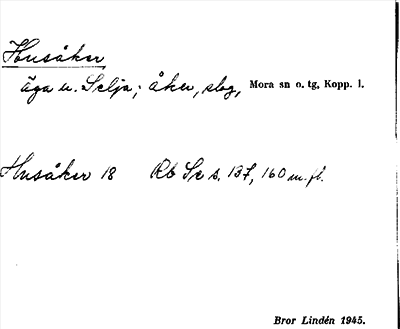 Husåker
äga u. Selja; åker, slog, Mora sn o. tg, Kopp. l.
Husåker 18 Rb Sr s. 137, 160 m. fl.
Bror Lindén 1945.